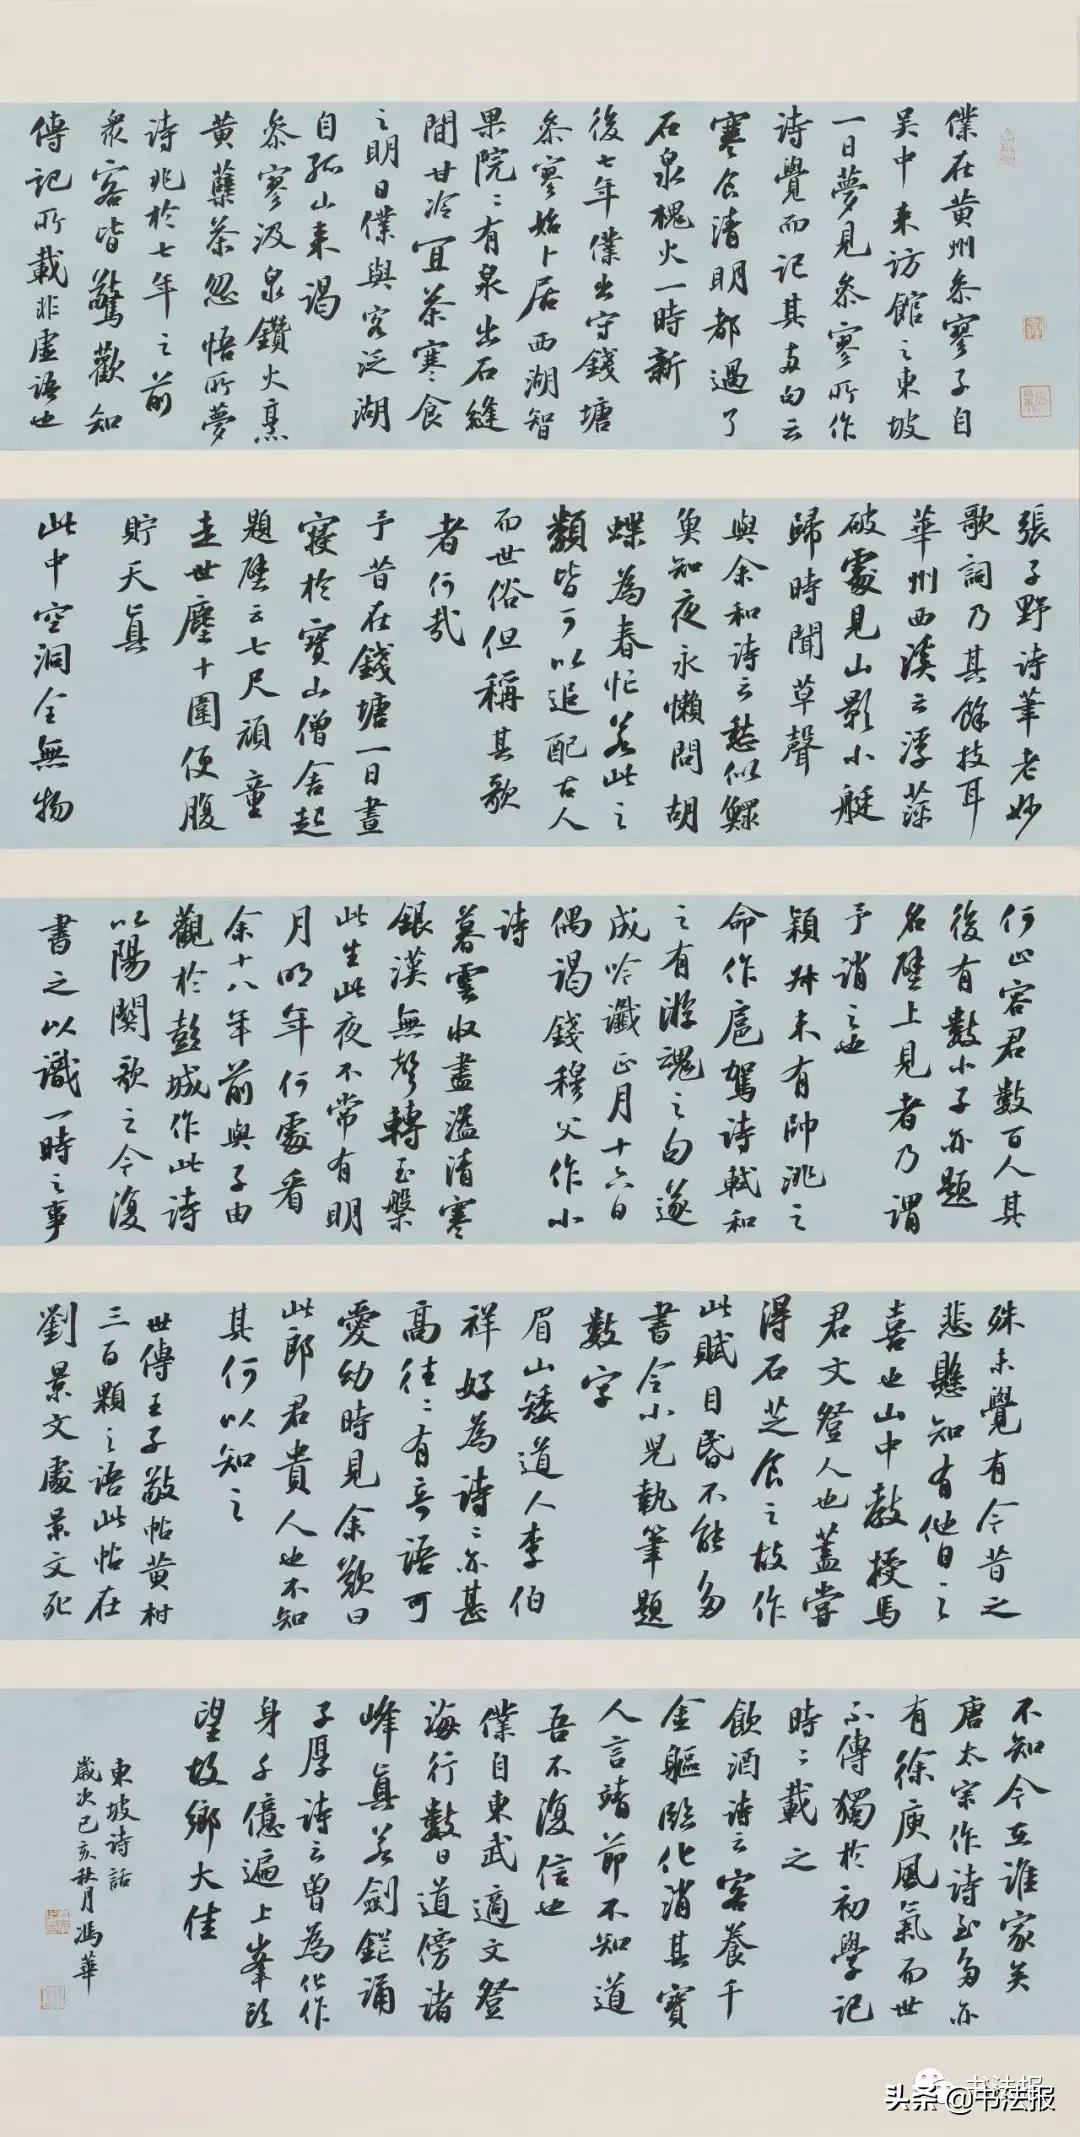 僕在黄州參寥子自
吴中来访館之東坡
一日夢見參寥所作
诗覺而记其两句云
寒食清明都過了
石泉槐火一時新
後七年僕出守錢塘
參寥始卜居西湖智
果院〻有泉出石縫
間甘冷宜茶寒食
之明日僕與客泛湖
自孤山来谒
參寥汲泉鑽火烹
黄蘗茶忽悟所夢
诗兆於七年之前
衆客皆驚歎知
傳记所載非虛语也
張子野诗筆老妙
歌詞乃其餘技耳
華州西溪云浮萍
破處見山影小艇
歸時聞草聲
與余和诗云愁似鰥
魚知夜永懶問胡
蝶為春忙若此之
類皆可以追配古人
而世俗但稱其歌
者何哉
予昔在錢塘一日晝
寢於寶山僧舍起
題壁云七尺頑童
走世塵十圍便腹
貯天真
此中空洞全無物
何止容君數百人其
後有數小子亦題
名壁上見者乃謂
予诮之也
颖叔未有帥洮之
命作扈駕诗軾和
之有游魂之句遂
成吟谶正月十六日
偶谒錢穆父作小
诗
暮雲收盡溢清寒
銀漢無聲轉玉槃
此生此夜不常有明
月明年何處看
余十八年前與子由
觀於彭城作此诗
以陽關歌之今復
書之以識一時之事
殊未覺有今昔之
悲懸知有他日之
喜也山中教授馬
君文登人也蓋嘗
得石芝食之故作
此賦目昏不能多
書令小兒執筆題
數字
眉山矮道人李伯
祥好為诗〻亦甚
高往〻有奇语可
愛幼時見余歎曰
此郎君貴人也不知
其何以知之
世傳王子敬帖黄柑
三百顆之语此帖在
劉景文處景文死
不知今在誰家矣
唐太宗作诗至多亦
有徐庾風氣而世
不傳獨於初學记
時〻載之
飲酒诗云客養千
金軀臨化消其寶
人言靖節不知道
吾不復信也
僕自東武適文登
海行數日道傍诸
峰真若劍鋩诵
子厚诗云曾為化作
身千億遍上峯頭
望故鄉大佳
東坡诗話
歲次己亥秋月馮華
书法报
头条@书法报